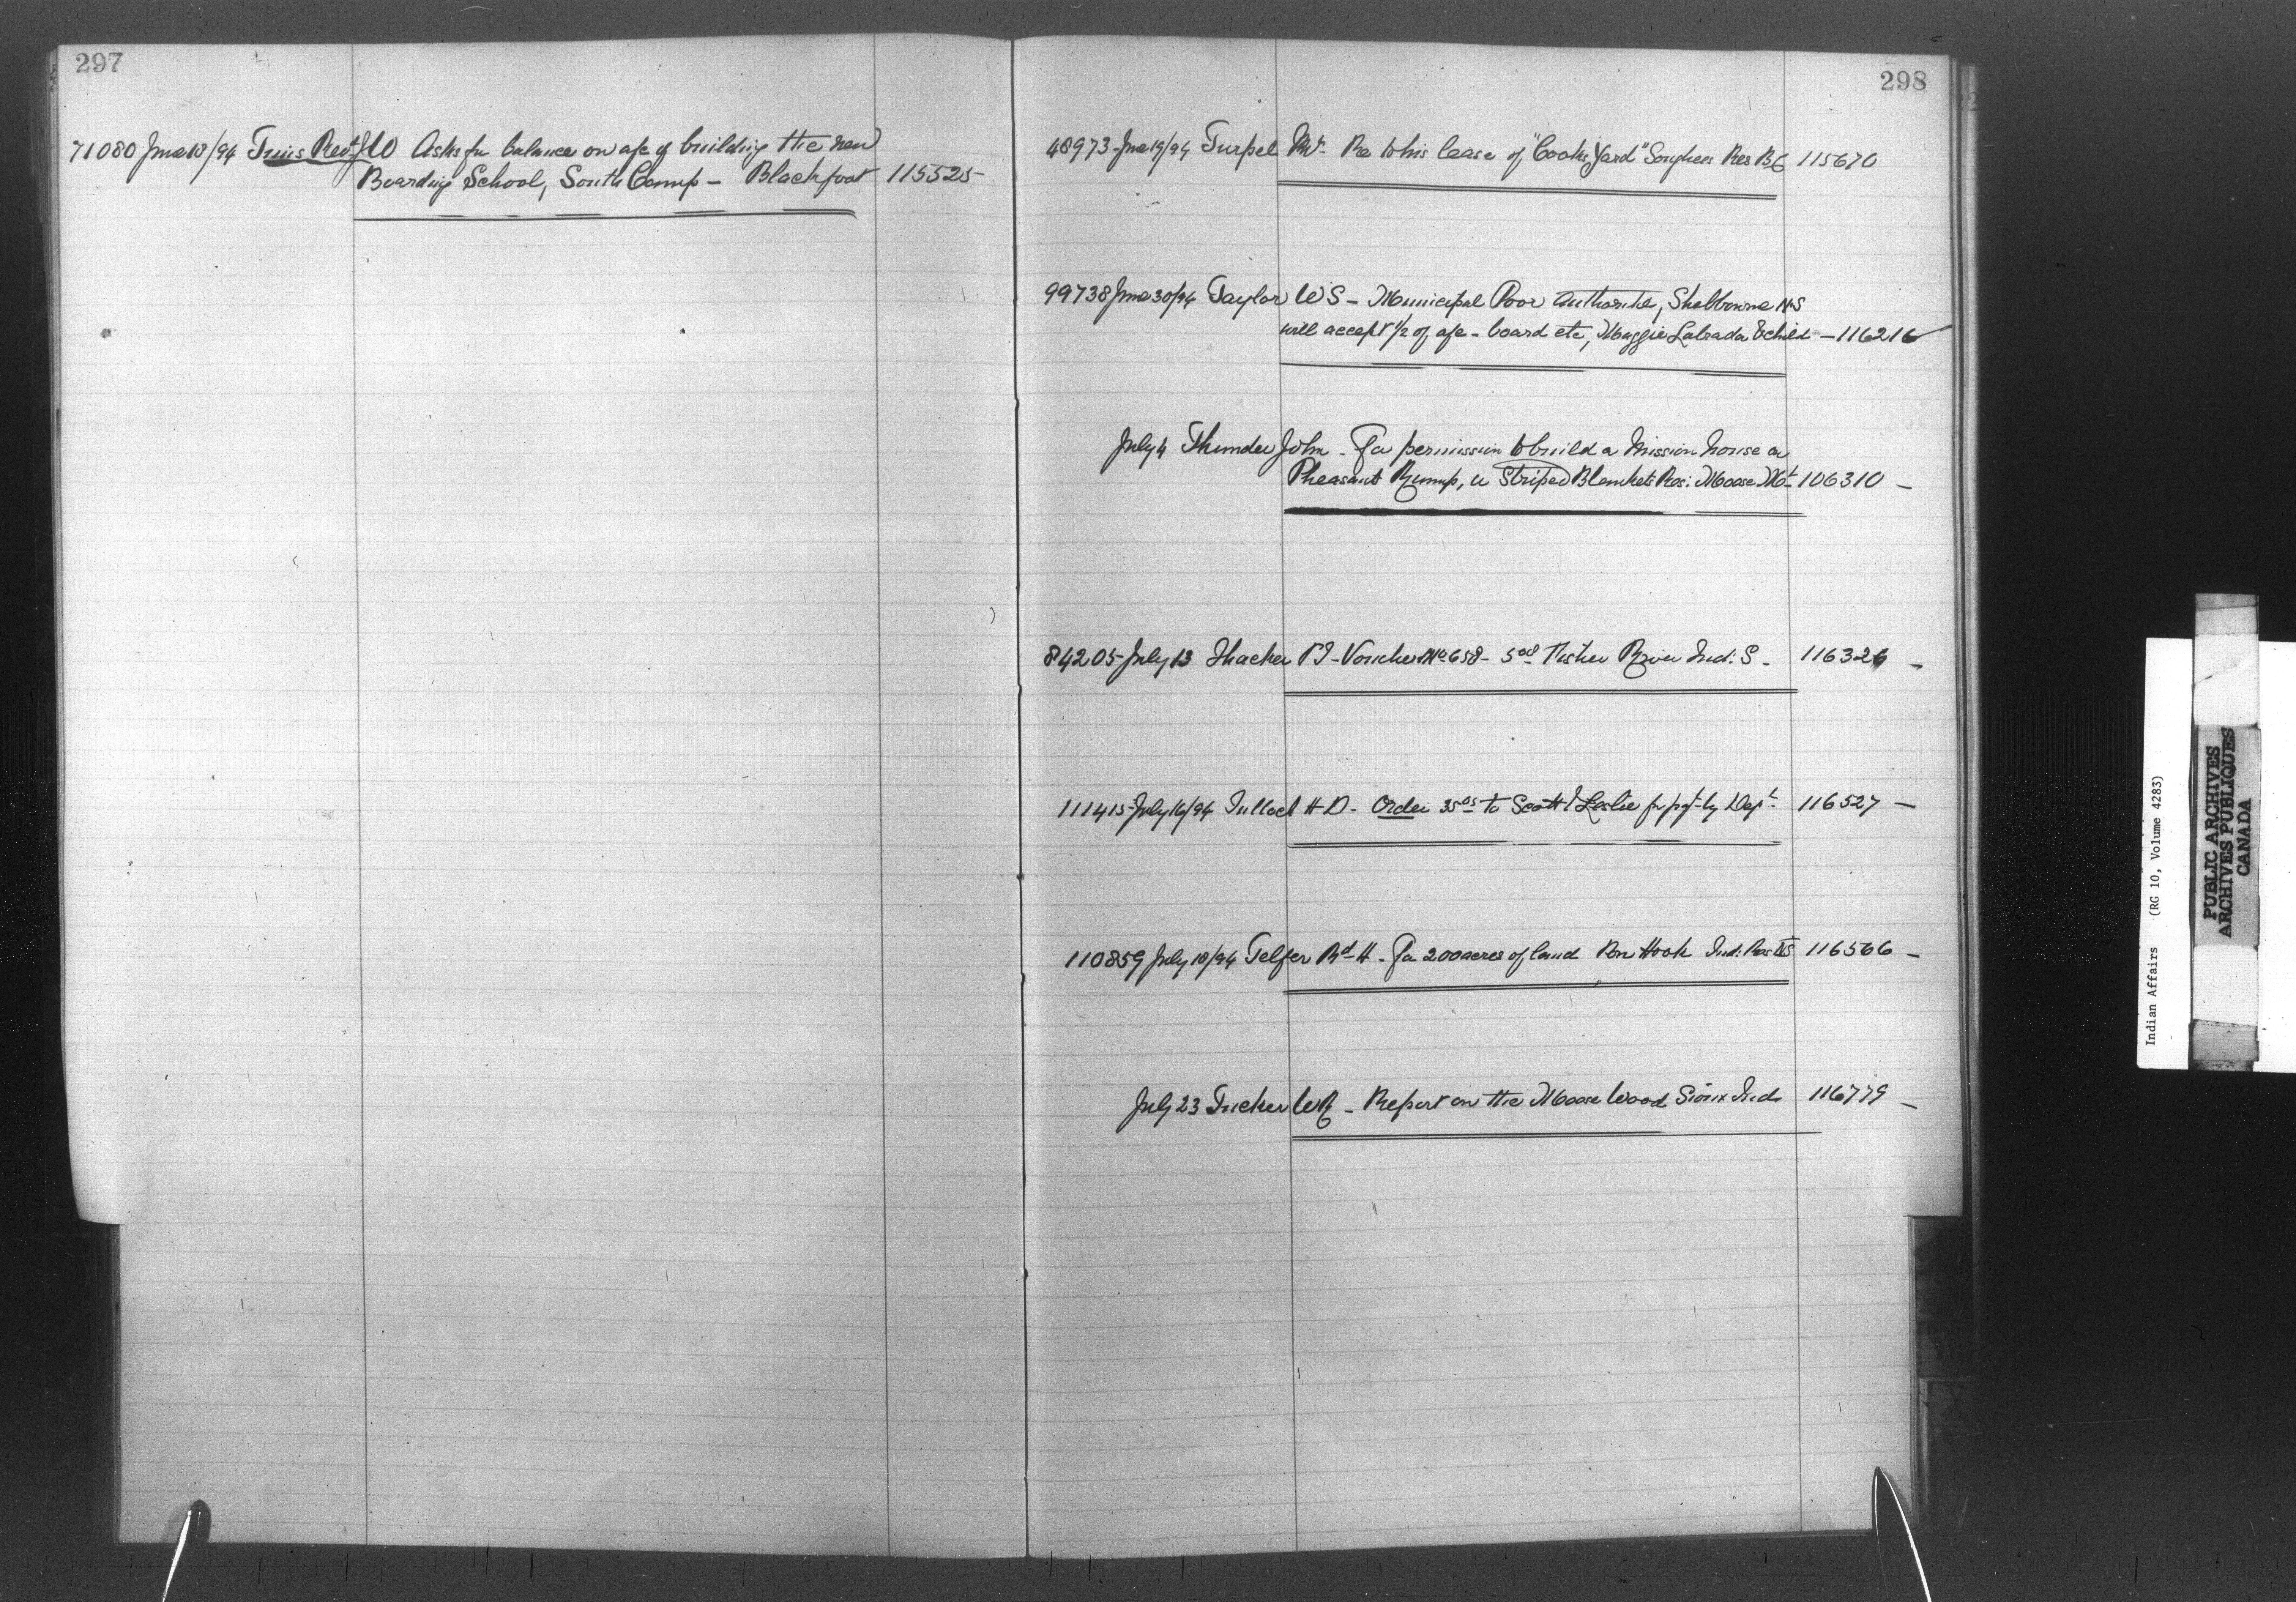 297
71080 June 18/94 Tims Revd J W Asks for balance on a/c of building the new
Boarding School, South Camp - Blackfoot 115525
298
48973 June 19/94 Turpel Mr. Re to his lease of "Cooks Yard" Songhees Res B C 115670
99738 June 30/94 Taylor W S - Municipal Poor Authorities, Shelbourne N S
will accept 1/2 of a/c - board etc, Maggie Labrada & child - 116216
July 4 Thunder John - For permission to build a Mission house on
Pheasant Rump, or Striped Blankets Res: Moose Mt 106310 -
84205 July 13 Thacker P J - Voucher No 658 - 5 00 Fisher River Ind: S - 116326 -
111415 July 16/94 Tulloch H D - Order 35 05 to Scott & Leslie for pgt by Dept. 116527 -
110859 July 18/94 Telfer Rd H - For 200 acres of land Pon Hook Ind: Res NS 116566 -
July 23 Tucker W R - Report on the Moose Wood Sioux Inds 116779 -
Indian Affairs (RG 10, Volume 4283)
PUBLIC ARCHIVES
ARCHIVES PUBLIQUES
CANADA